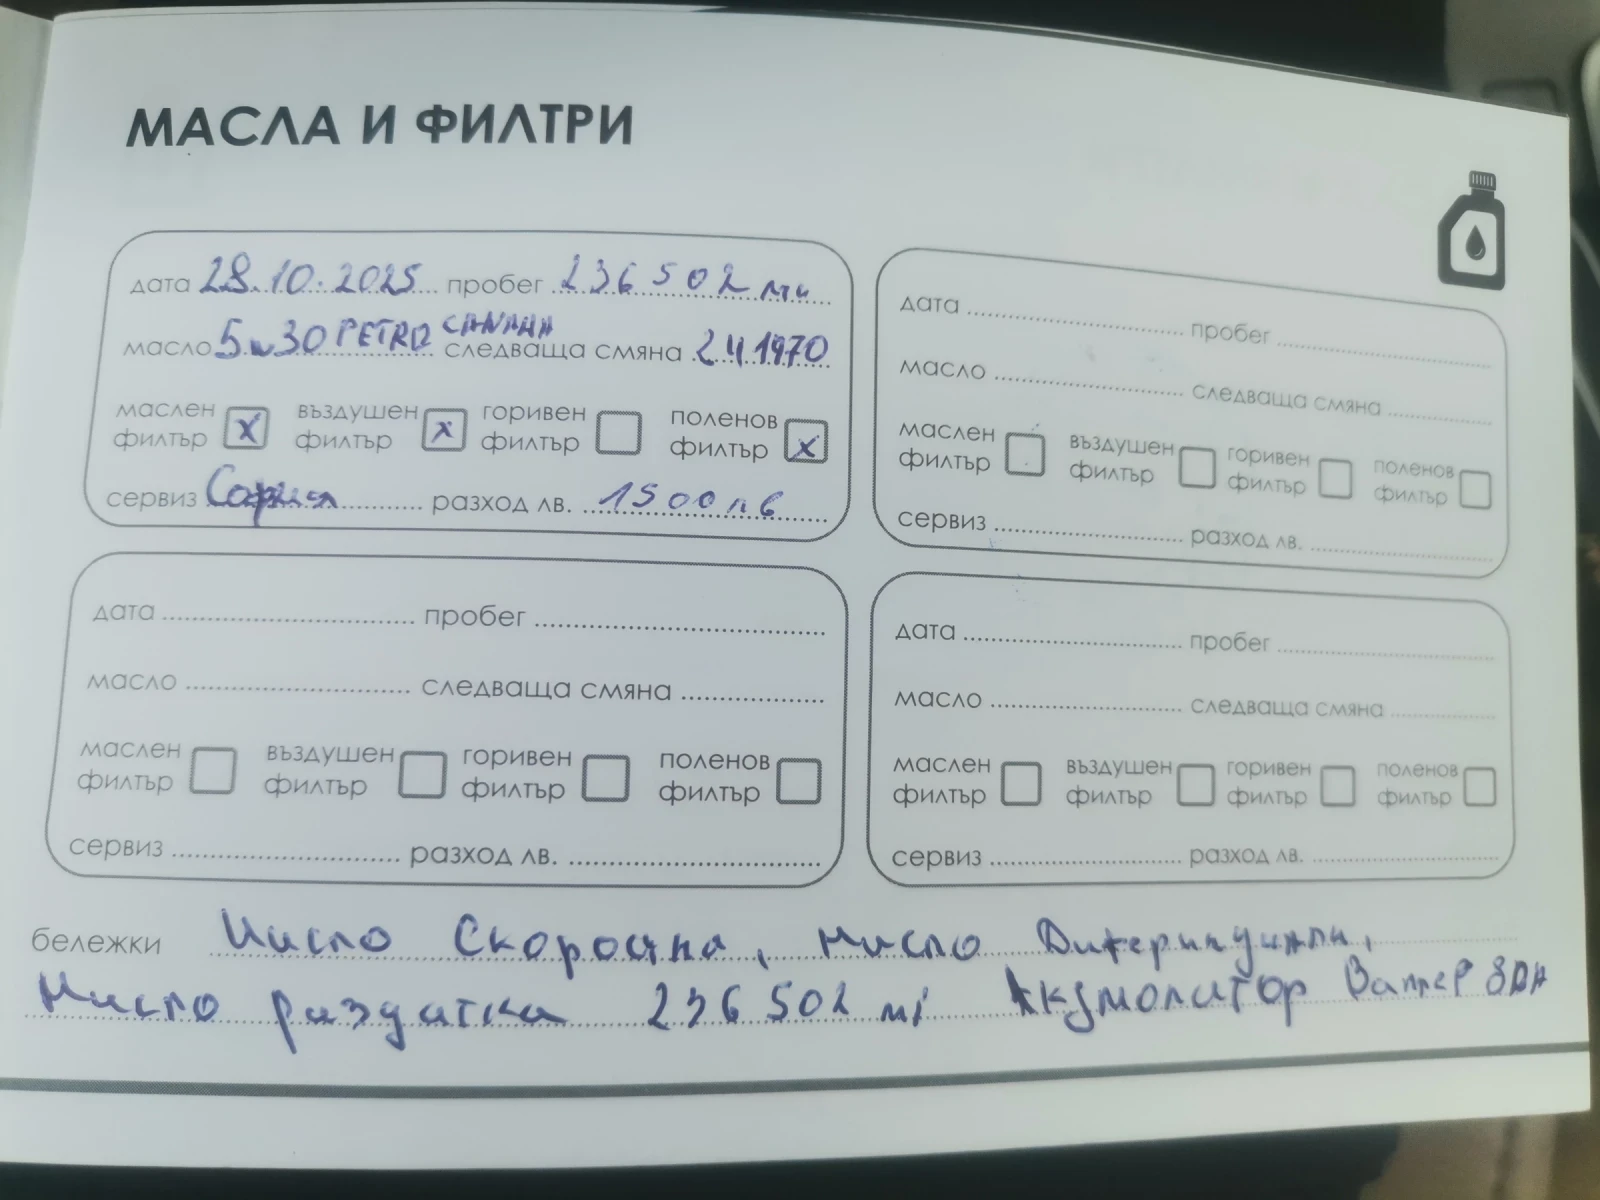 МАСЛА И ФИЛТРИ
дата 28.10.2025 пробег 236 502 ми
масло 5w30 PETRO CANADA следваща смяна 241970
маслен филтър x въздушен филтър x горивен филтър поленов филтър x
сервиз София разход лв. 1500лв
дата пробег
масло следваща смяна
маслен филтър въздушен филтър горивен филтър поленов филтър
сервиз разход лв.
дата пробег
масло следваща смяна
маслен филтър въздушен филтър горивен филтър поленов филтър
сервиз разход лв.
дата пробег
масло следваща смяна
маслен филтър въздушен филтър горивен филтър поленов филтър
сервиз разход лв.
бележки Масло Скорости, Масло
Масло раздатка 236 502 mi Акумолатор